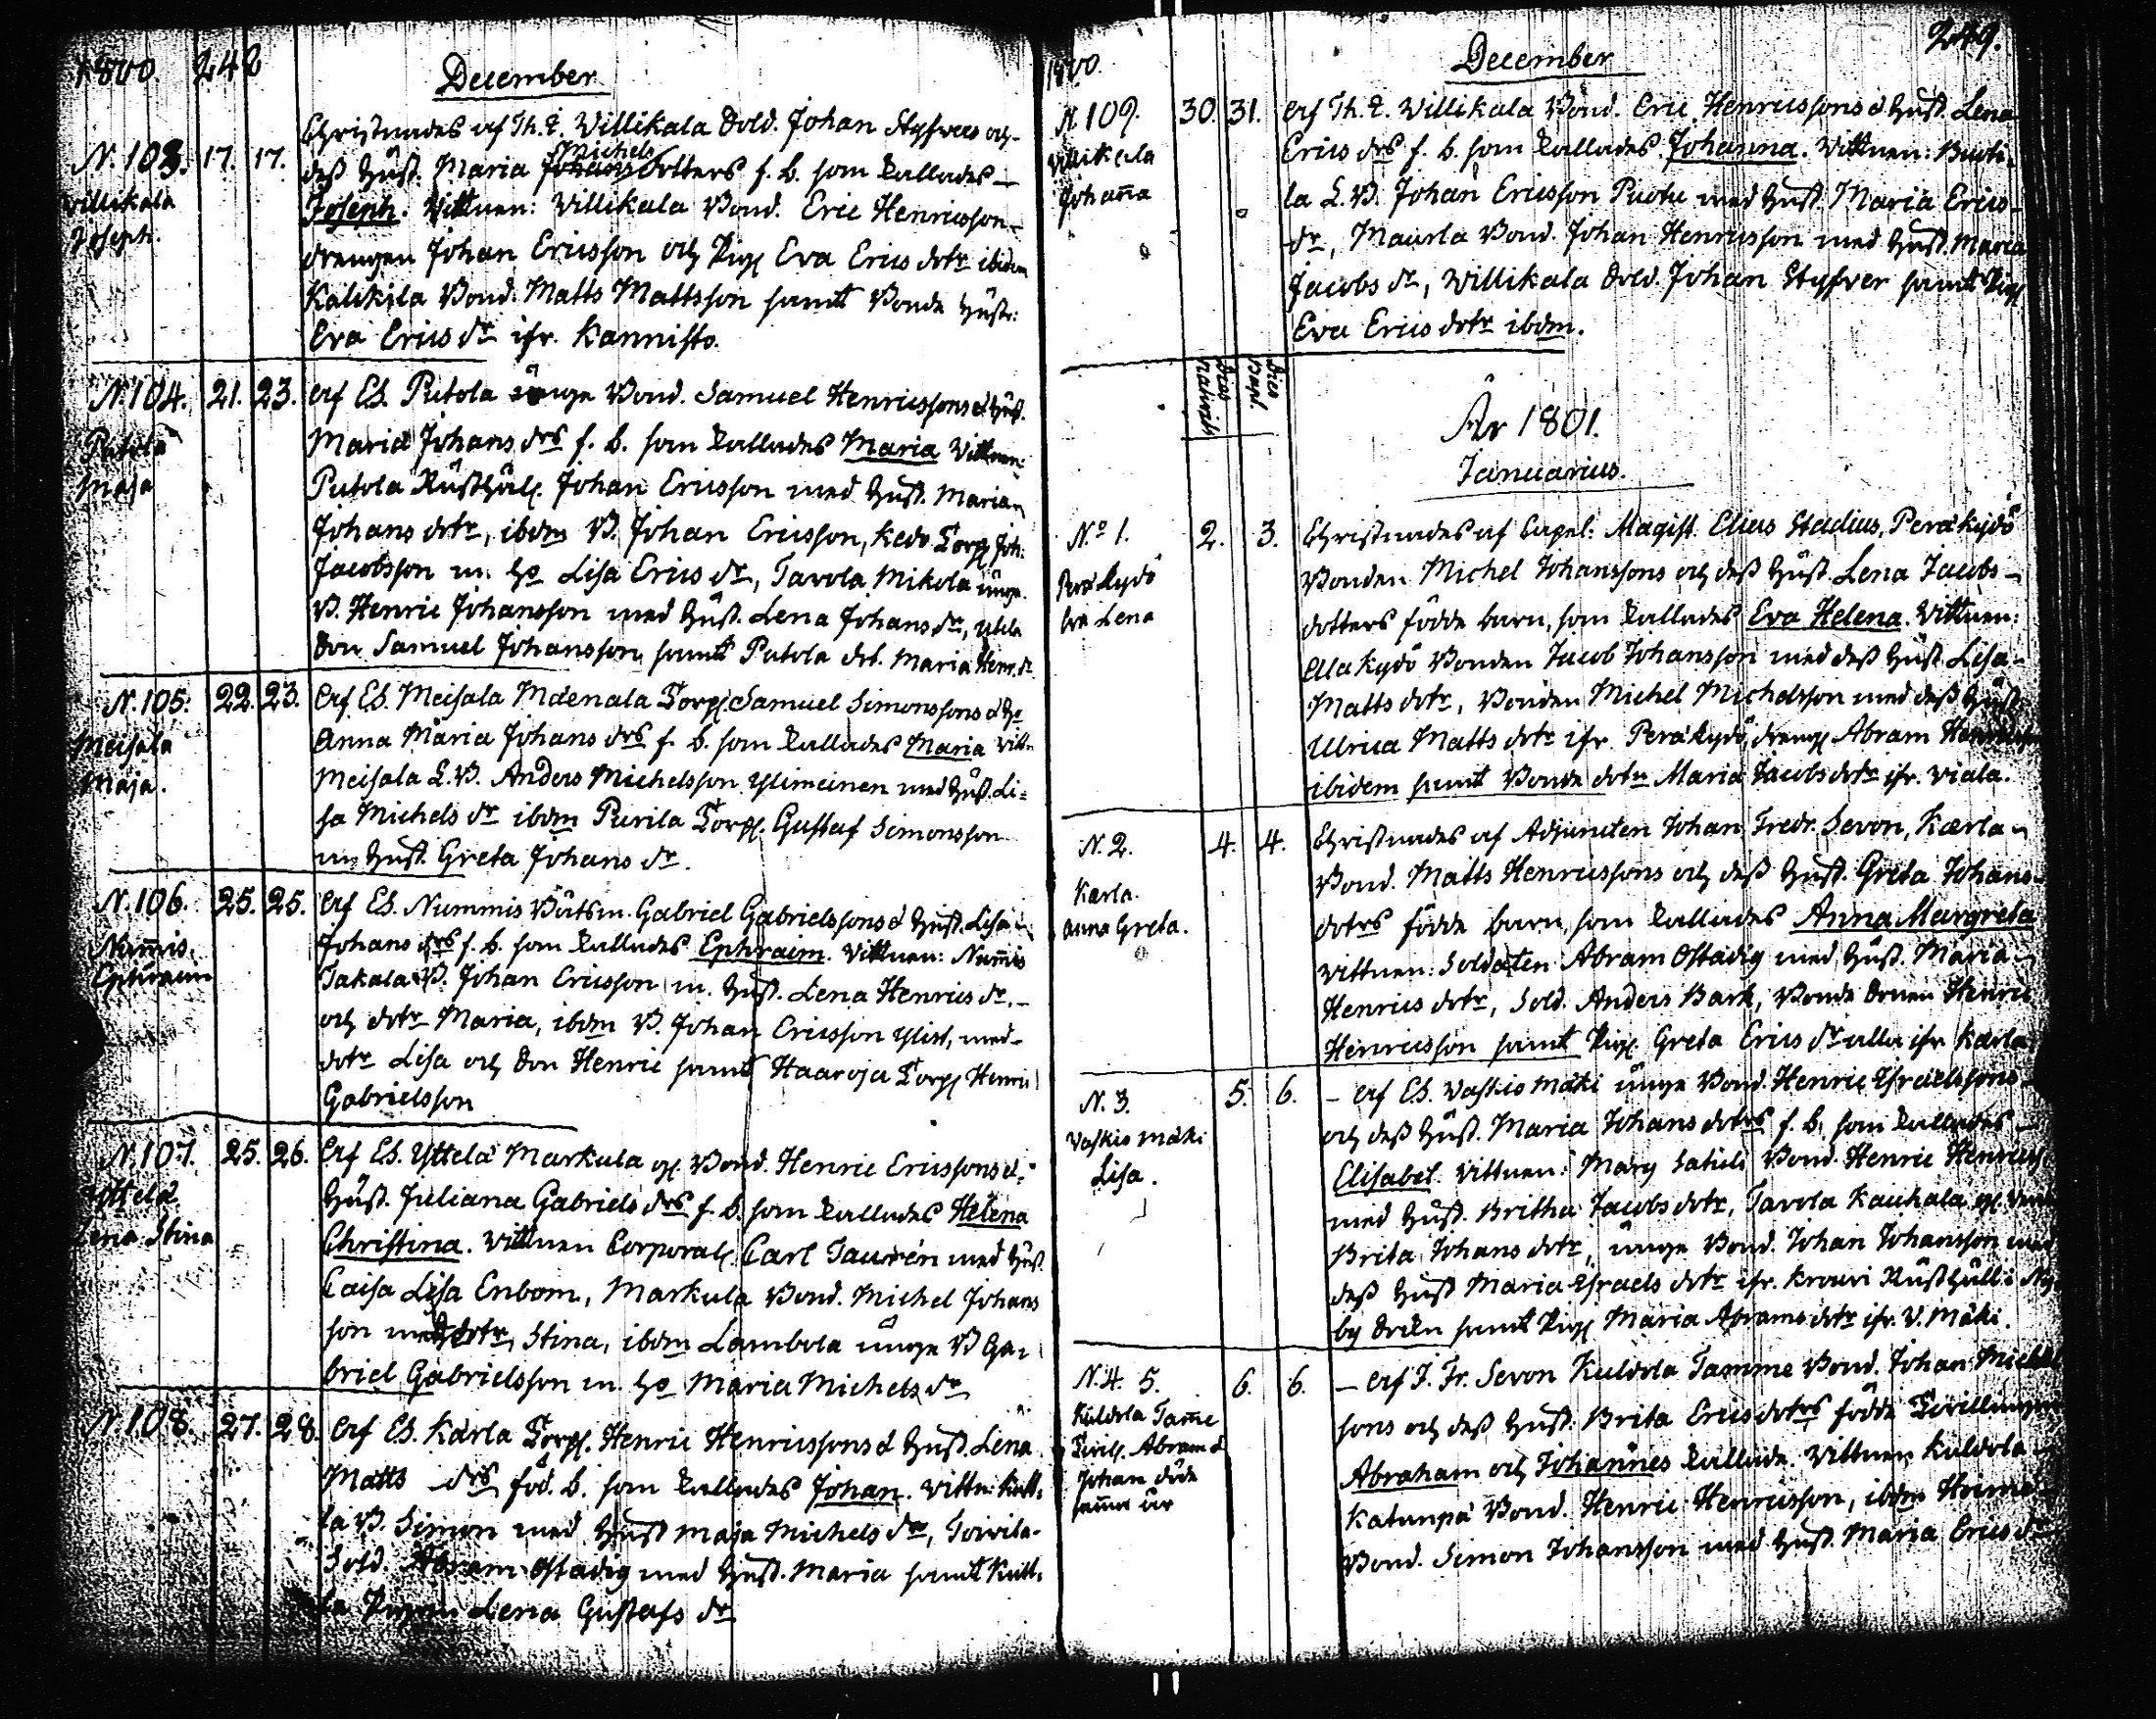 1800. 248
December
N. 103. 17. 17.
Willikala
Joseph.
Christnades af Th. E. Willikala Sold. Johan Styfvers och
dess Hust. Maria Johans Michels dotters f. b. som kallades
Joseph. Vittnen: Willikala Bond. Eric Henricsson
drengen Johan Ericsson och Pig. Eva Erics dotr ibidem
Kalikila Bond. Matts Mattsson samt Bonde Hust:
Eva Erics dr ifr. Kannisto.
N. 104. 21. 23.
Putola
Maja
Af Es. Putola unge Bond. Samuel Henricssons & Hust.
Maria Johans drs f. b. som kallades Maria Vittnen:
Putola Rusthåll. Johan Ericsson med Hust. Maria
Johans dotr, ibdm B. Johan Ericsson, Kedo Torp. Joh:
Jacobsson m. Ho Lisa Erics dr, Tavola Mikola unge
B. Henric Johansson med Hust. Lena Johans dr,
Son Samuel Johansson samt Putola drt. Maria Henr. dr
N. 105. 22. 23.
Meisala
Maja.
Af Es. Meisala Mäenala Torp. Samuel Simonssons & Ho
Anna Maria Johans drs f. b. som kallades Maria Vittn
Meisala L. B. Anders Michelsson Ylimeinen med Hust. Li-
sa Michels dr ibdm Purila Torp. Gustaf Simonsson
m Hust. Greta Johans dr.
N. 106. 25. 25.
Num̄is.
Ephraim
Af Es. Nummis Båtsm. Gabriel Gabrielssons & Hust. Lisa
Johans drs f. b. som kallades Ephraim. Vittnen: Num̄is
Jakala B. Johan Ericsson m. Hust. Lena Henrics dr.
och dotr Maria, ibdm B. Johan Ericsson Ylist, med
dotr Lisa och Son Henric samt Haaroja Torp. Henric
Gabrielsson
N. 107. 25. 26.
Yttelä
Lena Stina
Af Es. Yttelä Markula gl. Bond. Henric Ericssons &
Hust. Juliana Gabriels drs f. b. som kallades Helena
Christina. Vittnen Corporal. Carl Taurén med Hust.
Caisa Lisa Enbom, Markula Bond. Michel Johans
son med dotr Stina, ibdm Lambola unge B Ga-
briel Gabrielsson m. Ho Maria Michels dr
N. 108. 27. 28.
Af Es. Karla Torp. Henric Henricssons & Hust. Lena
Matts drs föd. b. som kallades Johan. Vittn: Kutt-
la B. Simon med Hust Maja Michels dr, Toivila
Sold. Abram Ostadig med Hust. Maria samt Kutt-
la Pigan Lena Gustafs dr
1800. 249.
December
N. 109. 30. 31.
Willikala
Johan̄a
Af Th. E. Willikala Bond. Eric Henricssons & Hust. Lena
Erics drs f. b. som kallades Johanna. Vittnen:
la L. B. Johan Ericsson Puotu med Hust. Maria Erics
dr, Maurla Bond. Johan Henricsson med Hust. Maria
Jacobs dr, Willikala Sold. Johan Styfver samt Pig.
Eva Erics dotr ibdm.
Dies nativit. Dies Bapt.
År 1801.
Januarius.
N.o 1. 2. 3.
Peräkydö
Eva Lena
Christnades af Capel: Magist. Elias Stadius, Peräkydö
Bonden Michel Johanssons och dess Hust. Lena Jacobs
dotters födde barn, som kallades Eva Helena. Vittnen:
Alakydö Bonden Jacob Johansson med dess Hust Lisa
Matts dotr, Bonden Michel Michelsson med dess Hust.
Ulrica Matts dotr ifr. Peräkydö, dreng. Abram Henricsson
ibidem samt Bonde dotn Maria Jacobs dotr ifr. Viala.
N. 2. 4. 4.
Karla.
Anna Greta.
Christnades af Adjuncten Johan Fredr. Sevon, Karla
Bond. Matts Henricssons och dess Hust. Greta Johans
dotrs födde barn som kallades Anna Margreta
Vittnen: Soldaten Abram Ostadig med Hust. Maria
Henrics dotr, Sold. Anders Bark, Bonde Sonen Henric
Henricsson samt Pig. Greta Erics dr alla ifr Karla
N. 3. 5. 6.
Vaskio mäki
Lisa.
– Af Es. Vaskio Mäki unge Bond. Henric Israelssons
och dess Hust. Maria Johans dotrs f. b. som kallades
Elisabet. Vittnen: Mary Bond. Henric Henricss.
med Hust. Britha Jacobs dotr, Tavola Kauhala gl.
Brita Johans dotr, unge Bond. Johan Johansson med
dess Hust Maria Israels dotr ifr. Krouvi Rusthåll i Ny-
by samt Pig. Maria Abrams dotr ifr. V. Mäki.
N. 4. 5. 6. 6.
Kuldola Tam̄e
Twill. Abram &
Johan döde
sam̄a år
– Af J. Fr. Sevon Kuldola Tamme Bond. Johan Michels
sons och dess Hust. Brita Erics dotrs födde Twillingar
Abraham och Johannes kallade. Vittnen Kuldola
Katunpä Bond. Henric Henricsson, ibdm Heime
Bond. Simon Johansson med Hust. Maria Erics dr